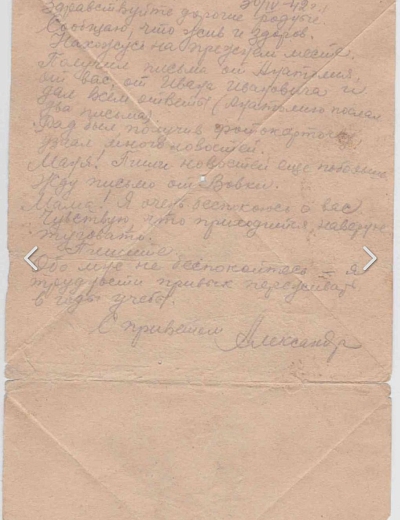 30/IV-42 г.
Здравствуйте дорогие родные.
Сообщаю, что жив и здоров.
Нахожусь на прежнем месте.
Получил письма от Анатолия,
от вас, от Ивана Ивановича и
дал всем ответы (Анатолию послал
два письма)
Рад был получив фотокарточку
узнал много новостей.
Маня! Пиши новостей еще побольше.
Жду письмо от Вовки.
Мама! Я очень беспокоюсь о вас
Чувствую, что приходится, наверно
туговато.
Пишите.
Обо мне не беспокойтесь — я
трудности привык переживать
в годы учебы.
С приветом Александр